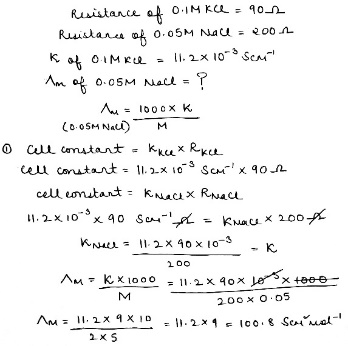 Resistance of 0.1M KCl = 90 Ω
Resistance of 0.05M NaCl = 200 Ω
K of 0.1M KCl = 11.2 × 10⁻³ Scm⁻¹
Λm of 0.05M NaCl = ?
Λm = 1000 × K / M
(0.05M NaCl)
① Cell constant = K_KCl × R_KCl
Cell constant = 11.2 × 10⁻³ Scm⁻¹ × 90 Ω
cell constant = K_NaCl × R_NaCl
11.2 × 10⁻³ × 90 Scm⁻¹ Ω = K_NaCl × 200 Ω
K_NaCl = 11.2 × 90 × 10⁻³ / 200 = K
Λm = K × 1000 / M = 11.2 × 90 × 10⁻³ × 1000 / 200 × 0.05
Λm = 11.2 × 9 × 10 / 2 × 5 = 11.2 × 9 = 100.8 Scm² mol⁻¹